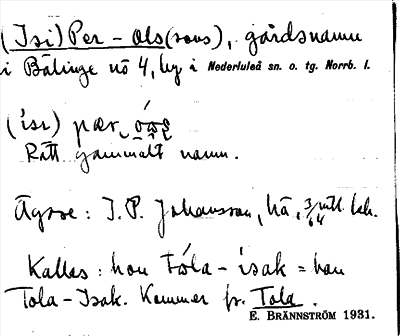 (Isi) Per-Ols(sons), gårdsnamn
i Bälinge nö 4, by i Nederluleå sn. o. tg. Norrb. l.
(isi) pær
Rätt gammalt namn.
Ägare: J. P. Johansson, hä, 3/64 mtl
Kallas: hon Tóla-ísak = han
Tola-Isak. Kommer fr. Tola.
E. BRÄNNSTRÖM 1931.